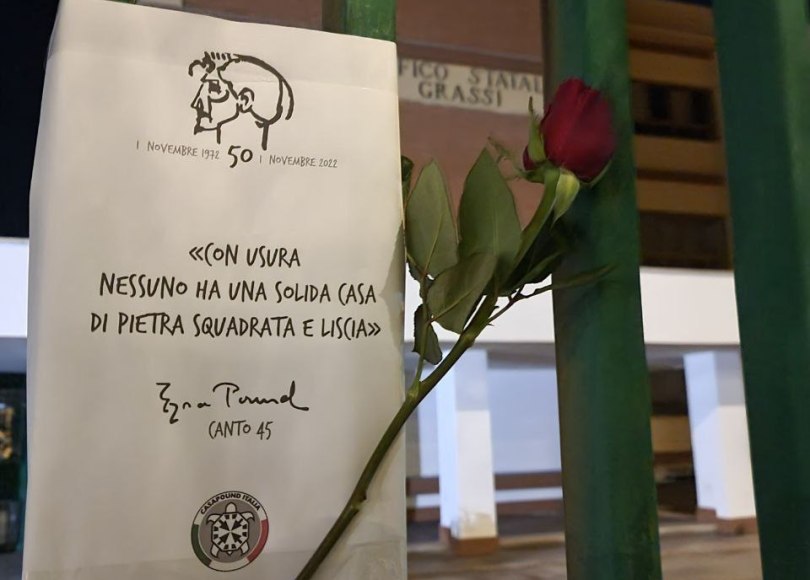 1 NOVEMBRE 1972 50 1 NOVEMBRE 2022
«CON USURA
NESSUNO HA UNA SOLIDA CASA
DI PIETRA SQUADRATA E LISCIA»
Ezra Pound
CANTO 45
CASAPOUND ITALIA
FICO STATAL
GRASSI